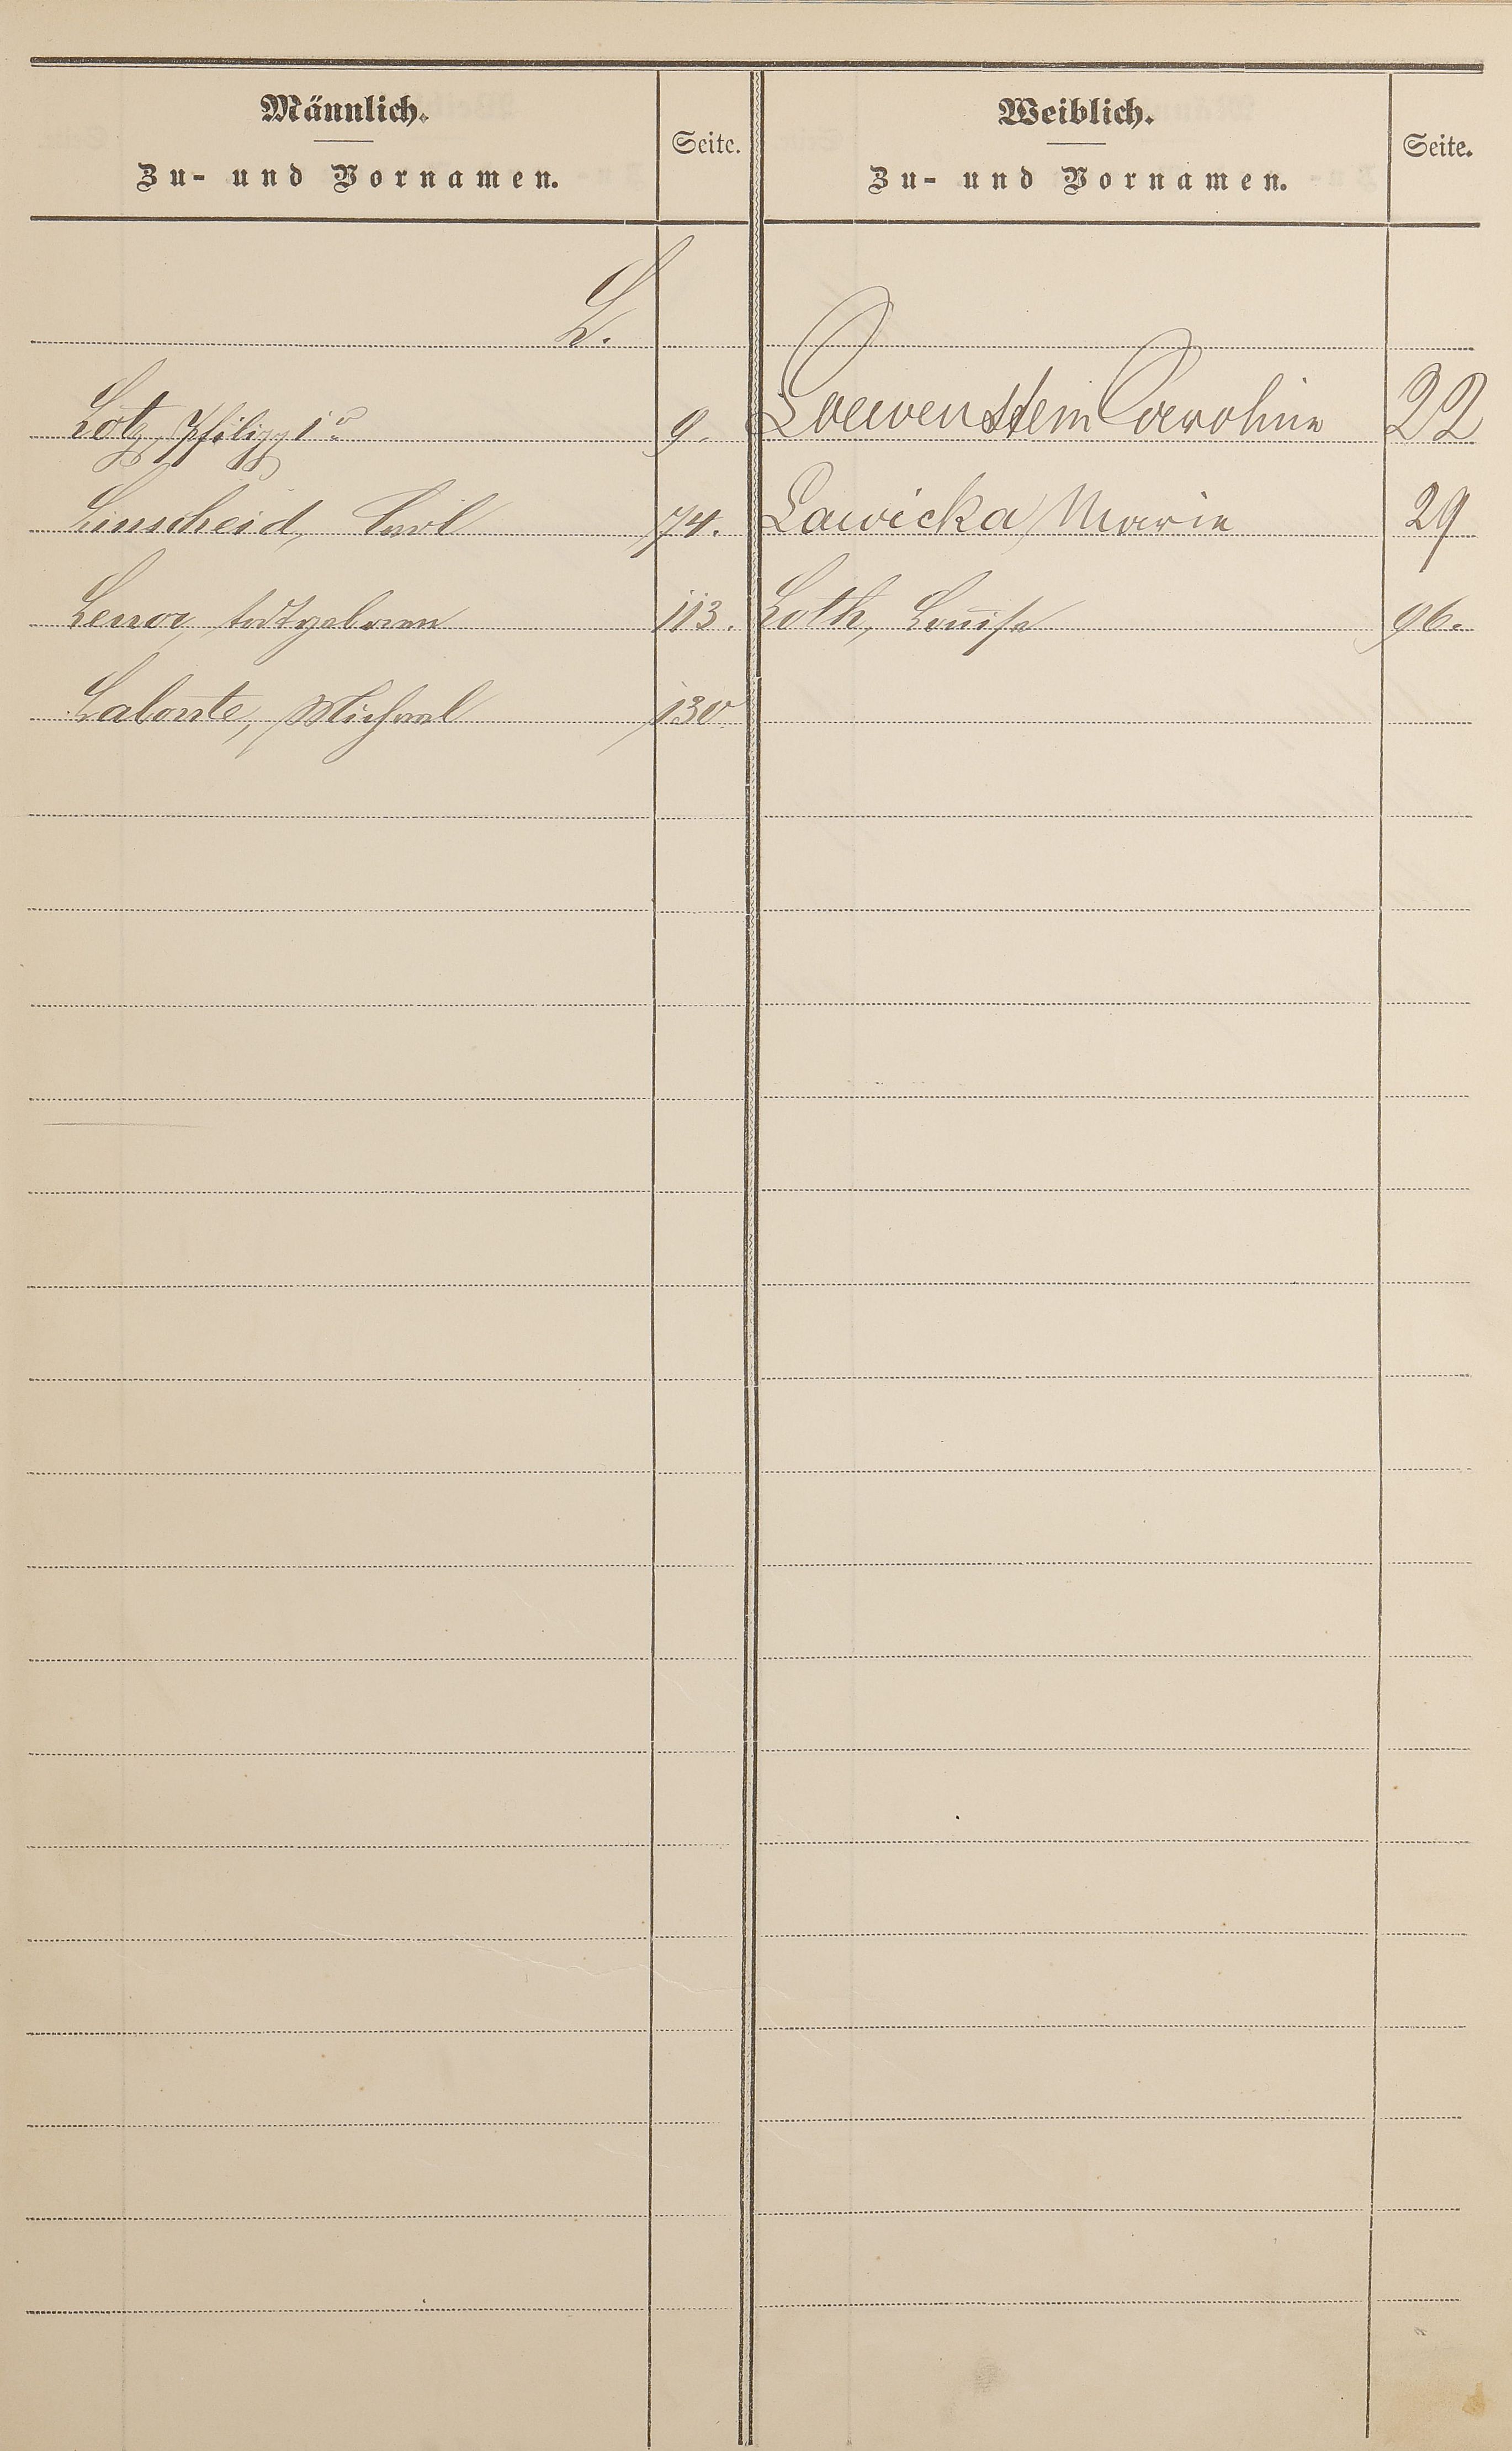 Männlich.
Zu- und Vornamen.
Seite.
Weiblich.
Zu- und Vornamen.
Seite.
L.
Lotz, Philipp 9.
Linscheid, Carl 74.
Lenor, todtgeboren 113.
Lalonte, Michael 130
Loewenstein Caroline 22
Lawicka Marie 29
Loth, Louise 96.